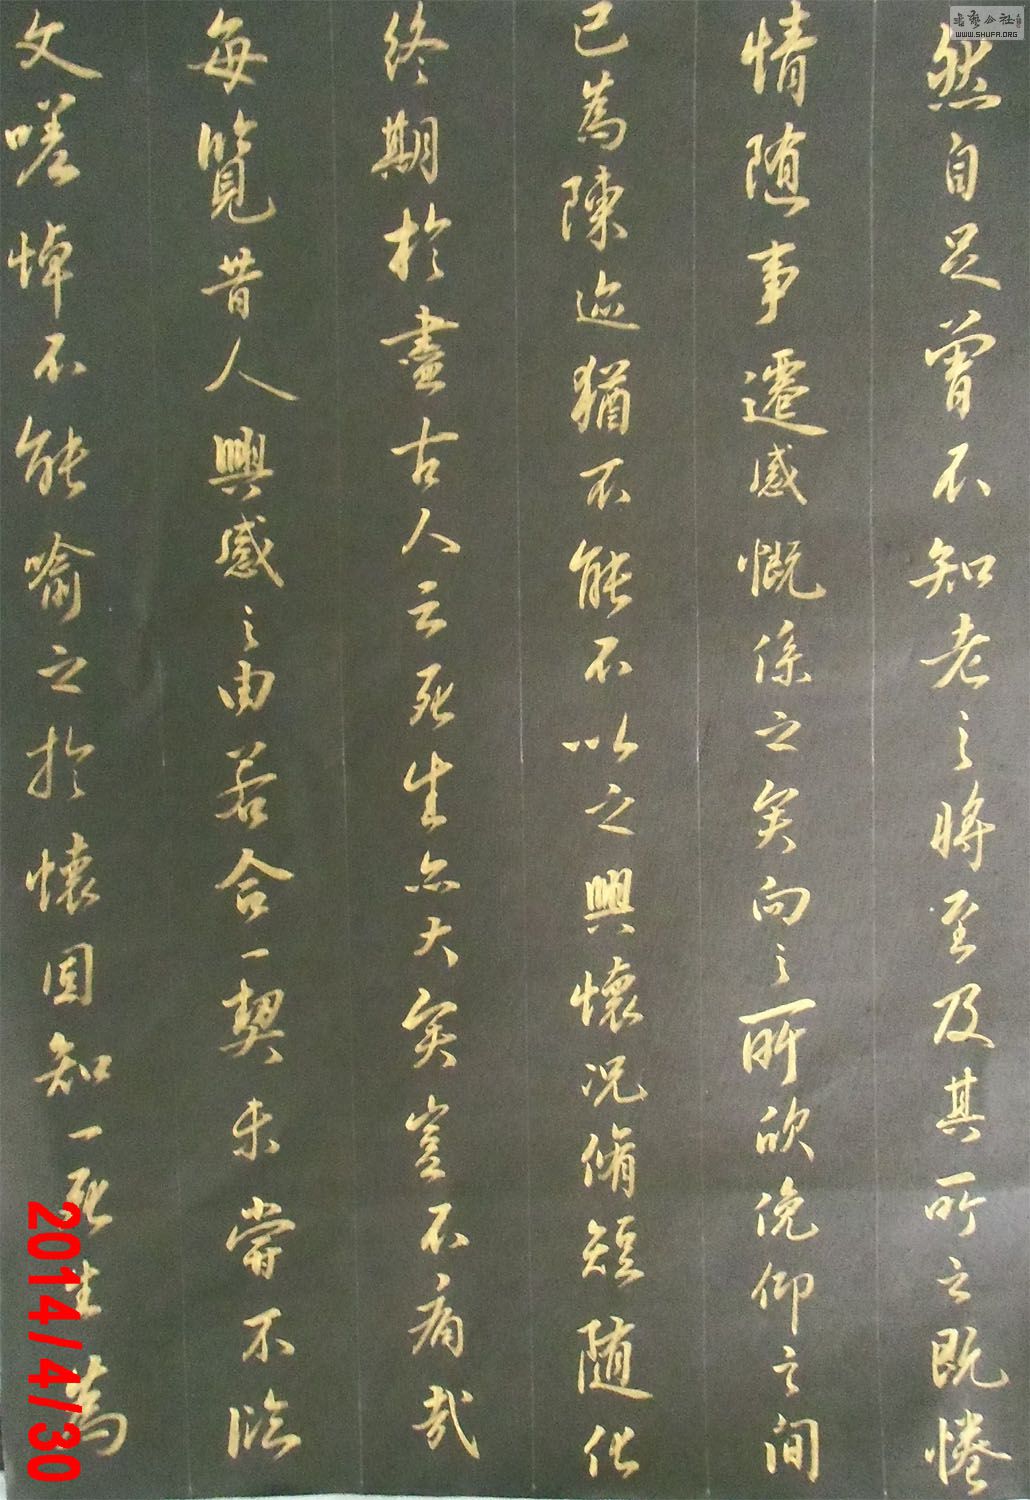 然自足曾不知老之將至及其所之既惓
情随事遷感慨係之矣向之所欣俛仰之間
已為陳迹猶不能不以之興懷况脩短随化
終期於盡古人云死生亦大矣豈不痛哉
每覽昔人興感之由若合一契未嘗不臨
文嗟悼不能喻之於懷固知一死生為
WWW.SHUFA.ORG
2014/4/30